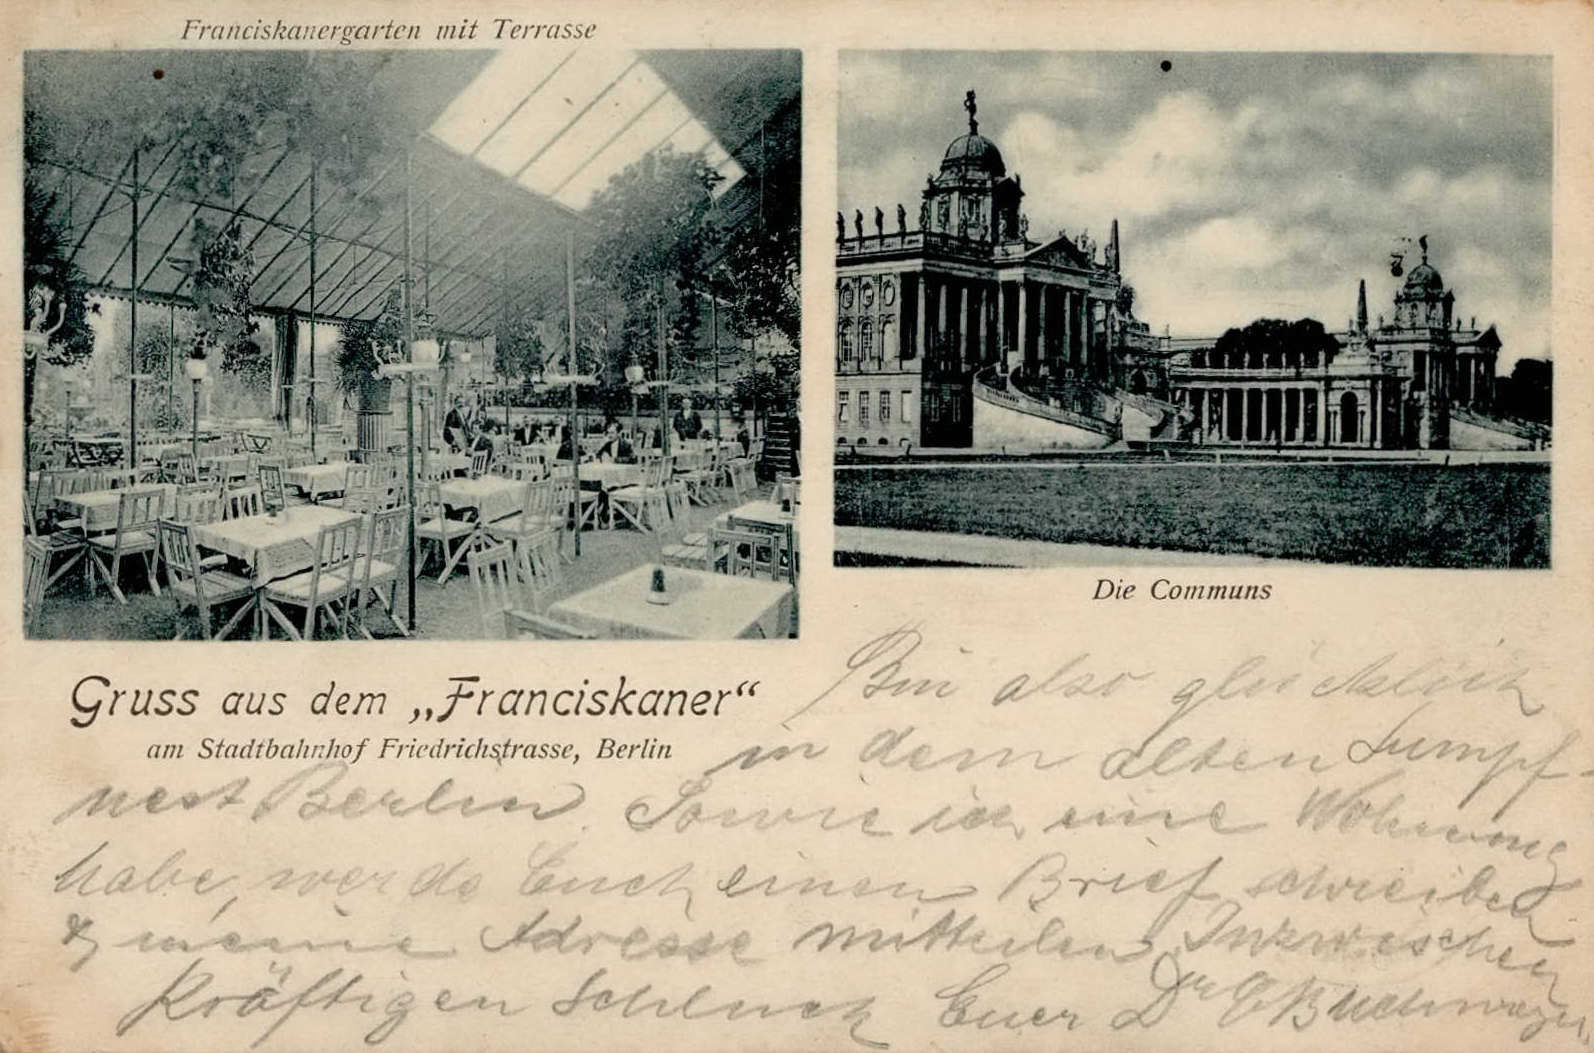 Franciskanergarten mit Terrasse
Die Communs
Gruss aus dem „Franciskaner“
am Stadtbahnhof Friedrichstrasse, Berlin
Bin also glücklich
in dem alten Sumpf-
nest Berlin. Sowie ich eine Wohnung
habe, werde Euch einen Brief schreiben
& meine Adresse mitteilen. Inzwischen
kräftigen Schluck Euer Dr